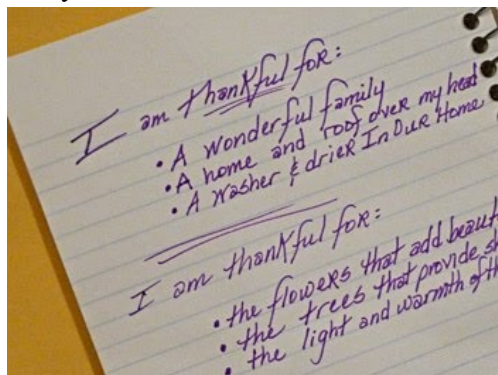 I am thankful for:
• A wonderful family
• A home and roof over my head
• A washer & drier In Our Home
I am thankful for:
• the flowers that add
• the trees that provide
• the light and warmth of